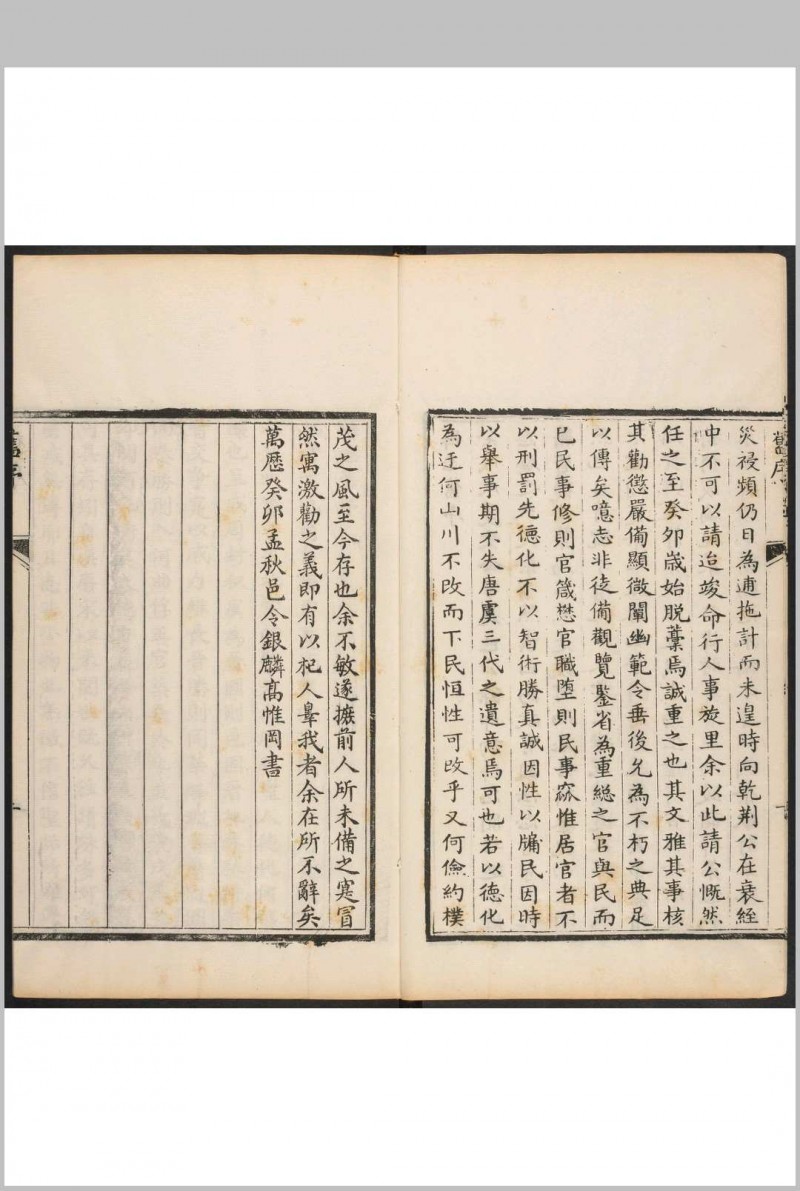 災祲頻仍日為逋拖計而未遑時向乾荆公在衰絰
中不可以請迨竣命行人事旋里余以此請公慨然
任之至癸卯歳始脱藁焉誠重之也其文雅其事核
其勸懲嚴備顯微闡幽範今垂後允為不朽之典足
以傳矣噫志非徒備觀覽鑒省為重緫之官與民而
已民事修則官箴懋官職堕則民事窳惟居官者不
以刑罰先德化不以智術勝真誠因性以牖民因時
以舉事期不失唐虞三代之遺意焉可也若以德化
為迂何山川不改而下民恒性可改乎又何儉約樸
茂之風至今存也余不敏遂摭前人所未備之寔冒
然寓激勸之義即有以杞人辠我者余在所不辭矣
萬歴癸卯孟秋邑令銀麟髙惟岡書
舊序
舊序